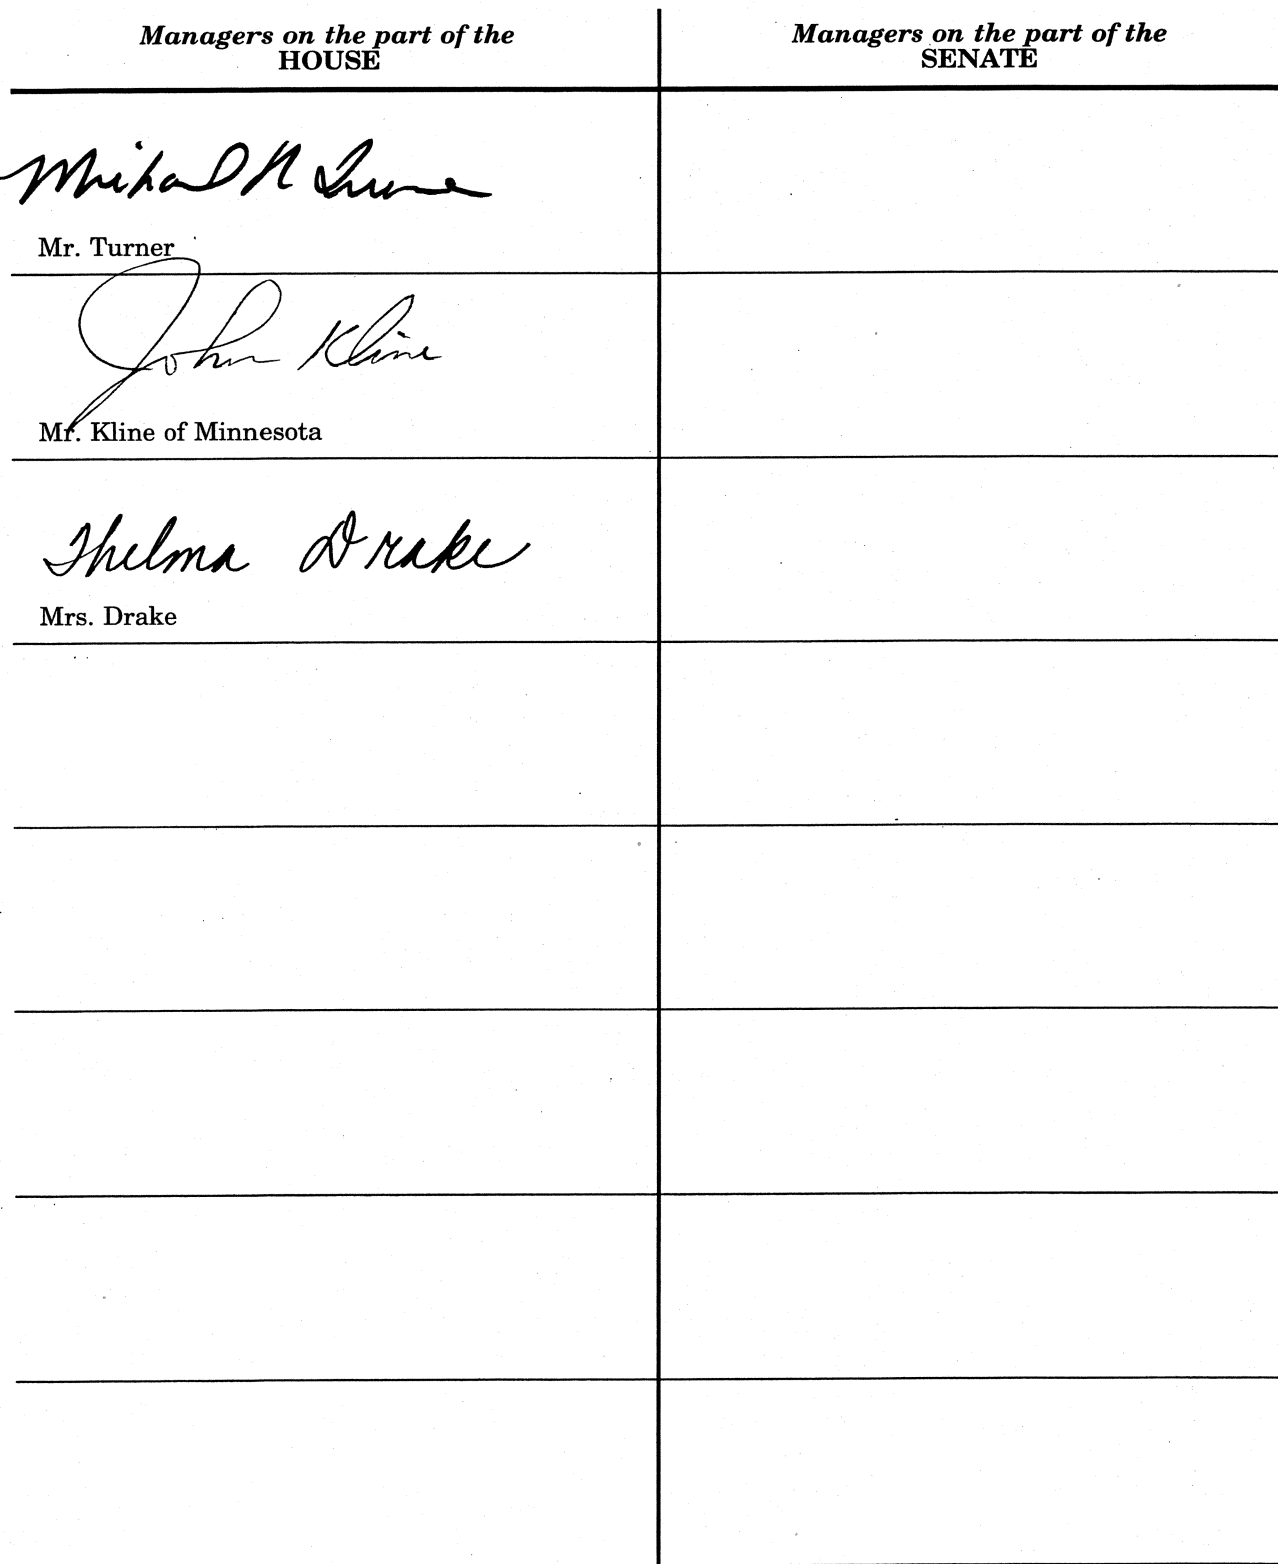 Managers on the part of the
HOUSE
Managers on the part of the
SENATE
Michael R Turner
Mr. Turner
John Kline
Mr. Kline of Minnesota
Thelma Drake
Mrs. Drake